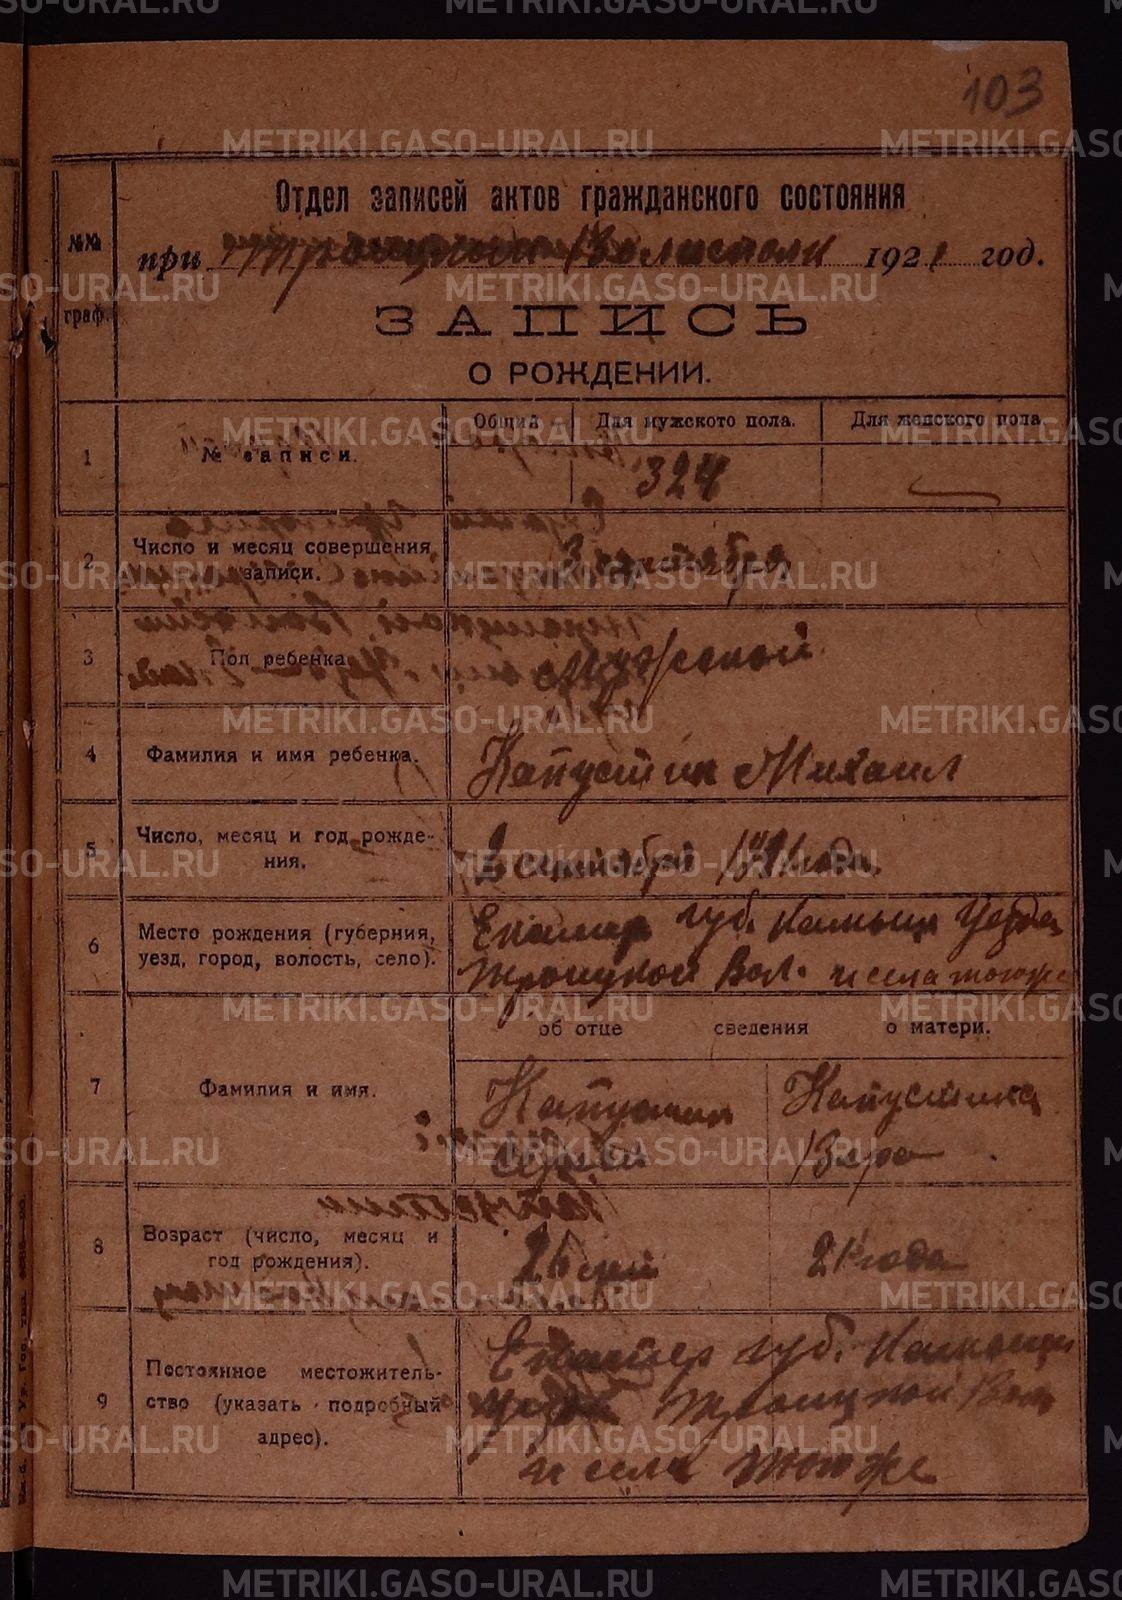 103
Отдел записей актов гражданского состояния
№№ граф.
при Троицком Волисполк 1921 год.
ЗАПИСЬ
О РОЖДЕНИИ.
1
№ записи.
Общий
Для мужского пола.
Для женского пола.
324
2
Число и месяц совершения записи.
3 сентября
3
Пол ребенка.
Мужской
4
Фамилия и имя ребенка.
Капустин Михаил
5
Число, месяц и год рождения.
2 сентября 1921 года
6
Место рождения (губерния, уезд, город, волость, село).
Екатер губ. Камышл Уезда
Троицкой Вол. и села того же
об отце сведения о матери.
7
Фамилия и имя.
Капустин
Капустина
Вера
8
Возраст (число, месяц и год рождения).
26
21 года
9
Постоянное местожительство (указать подробный адрес).
Екатер губ. Камышл
уезда Троицкой Вол
и села того же
METRIKI.GASO-URAL.RU